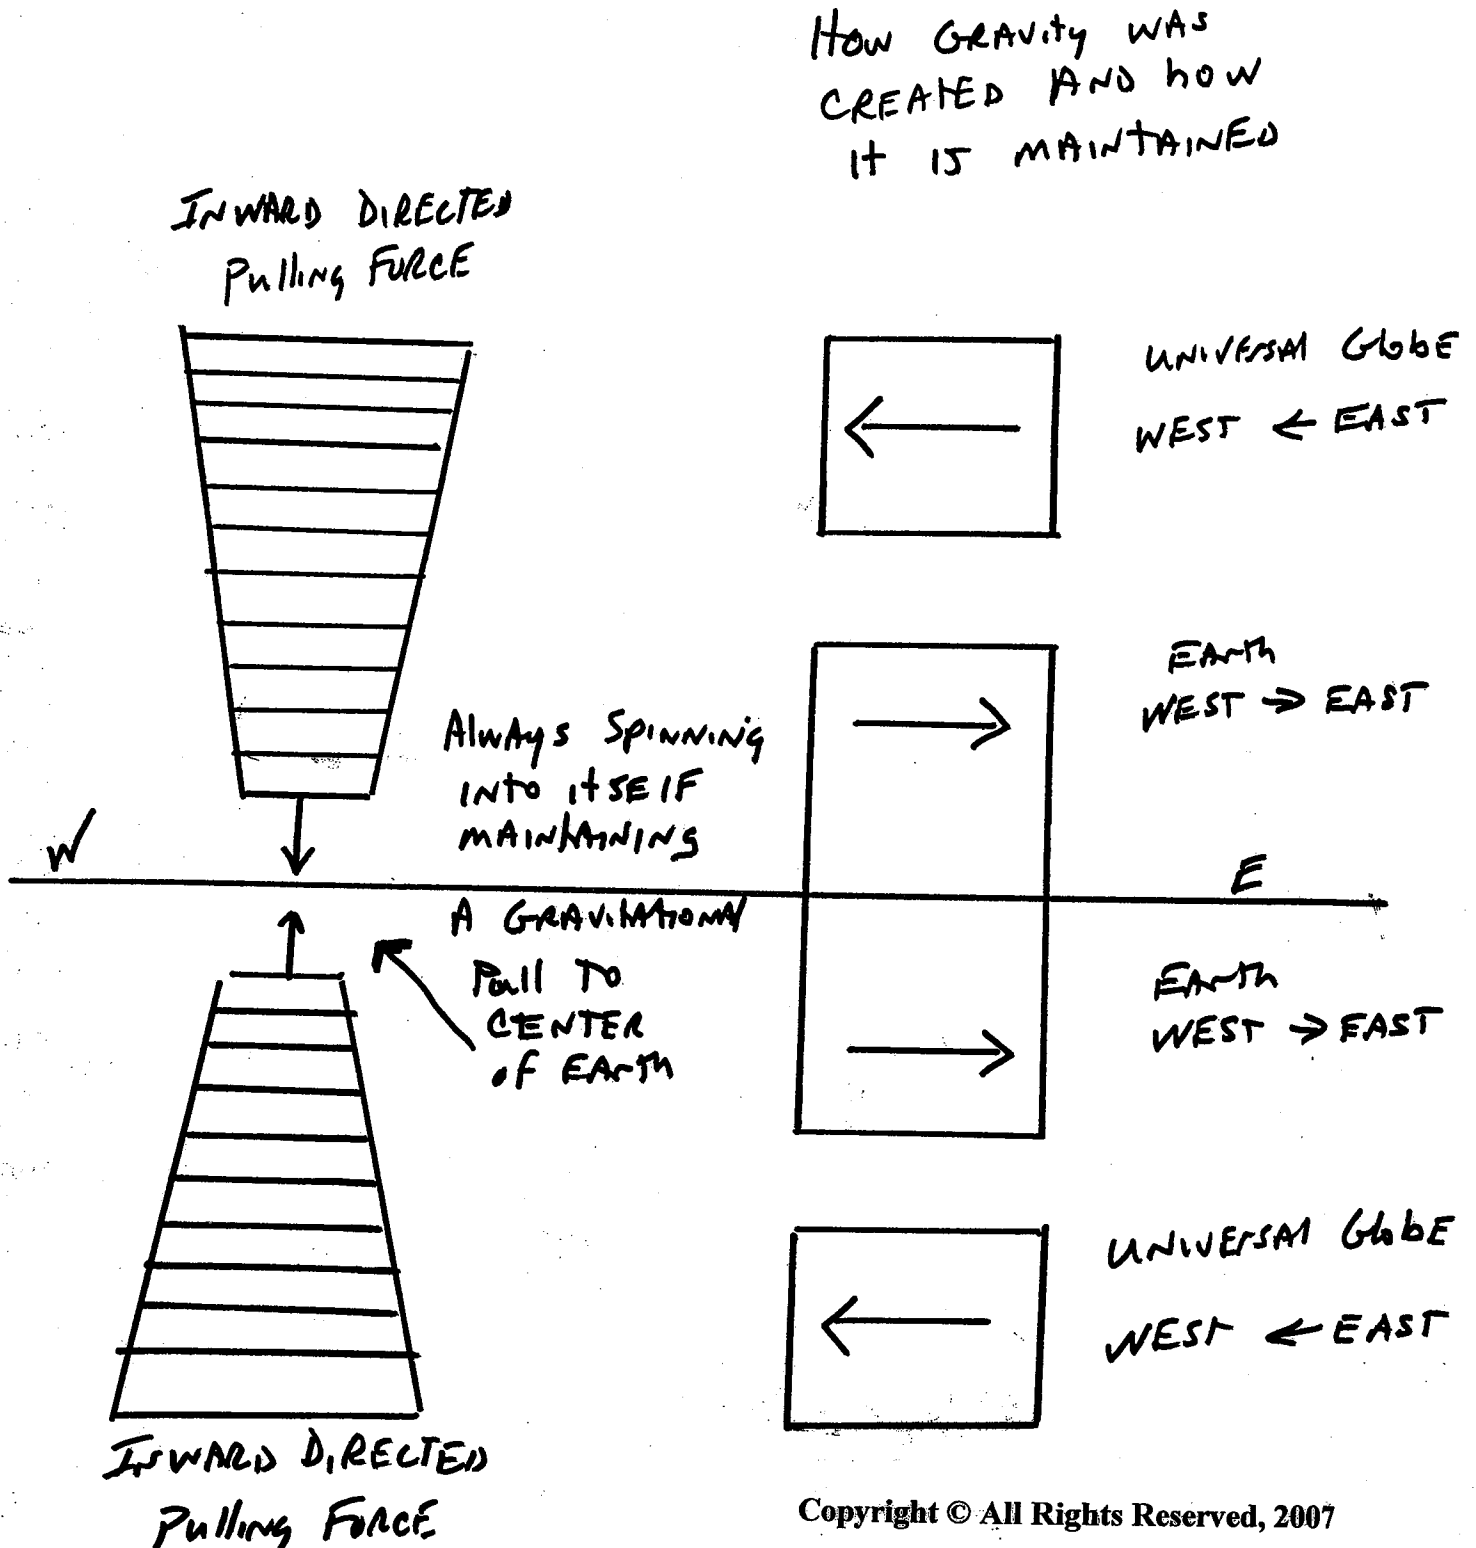 How GRAVity WAS
CREATED AND how
it is MAINTAINED
INWARD DIRECTED
Pulling FORCE
UNIVErsAl GlobE
WEST ← EAST
EArth
WEST → EAST
Always SpINNING
INto itSElF
MAINtAINING
W
E
A GRAVitAtioNAl
Pull TO
CENTER
oF EArth
EArth
WEST → EAST
UNIVErsAl GlobE
WEST ← EAST
INWARD DIRECTED
Pulling FORCE
Copyright © All Rights Reserved, 2007